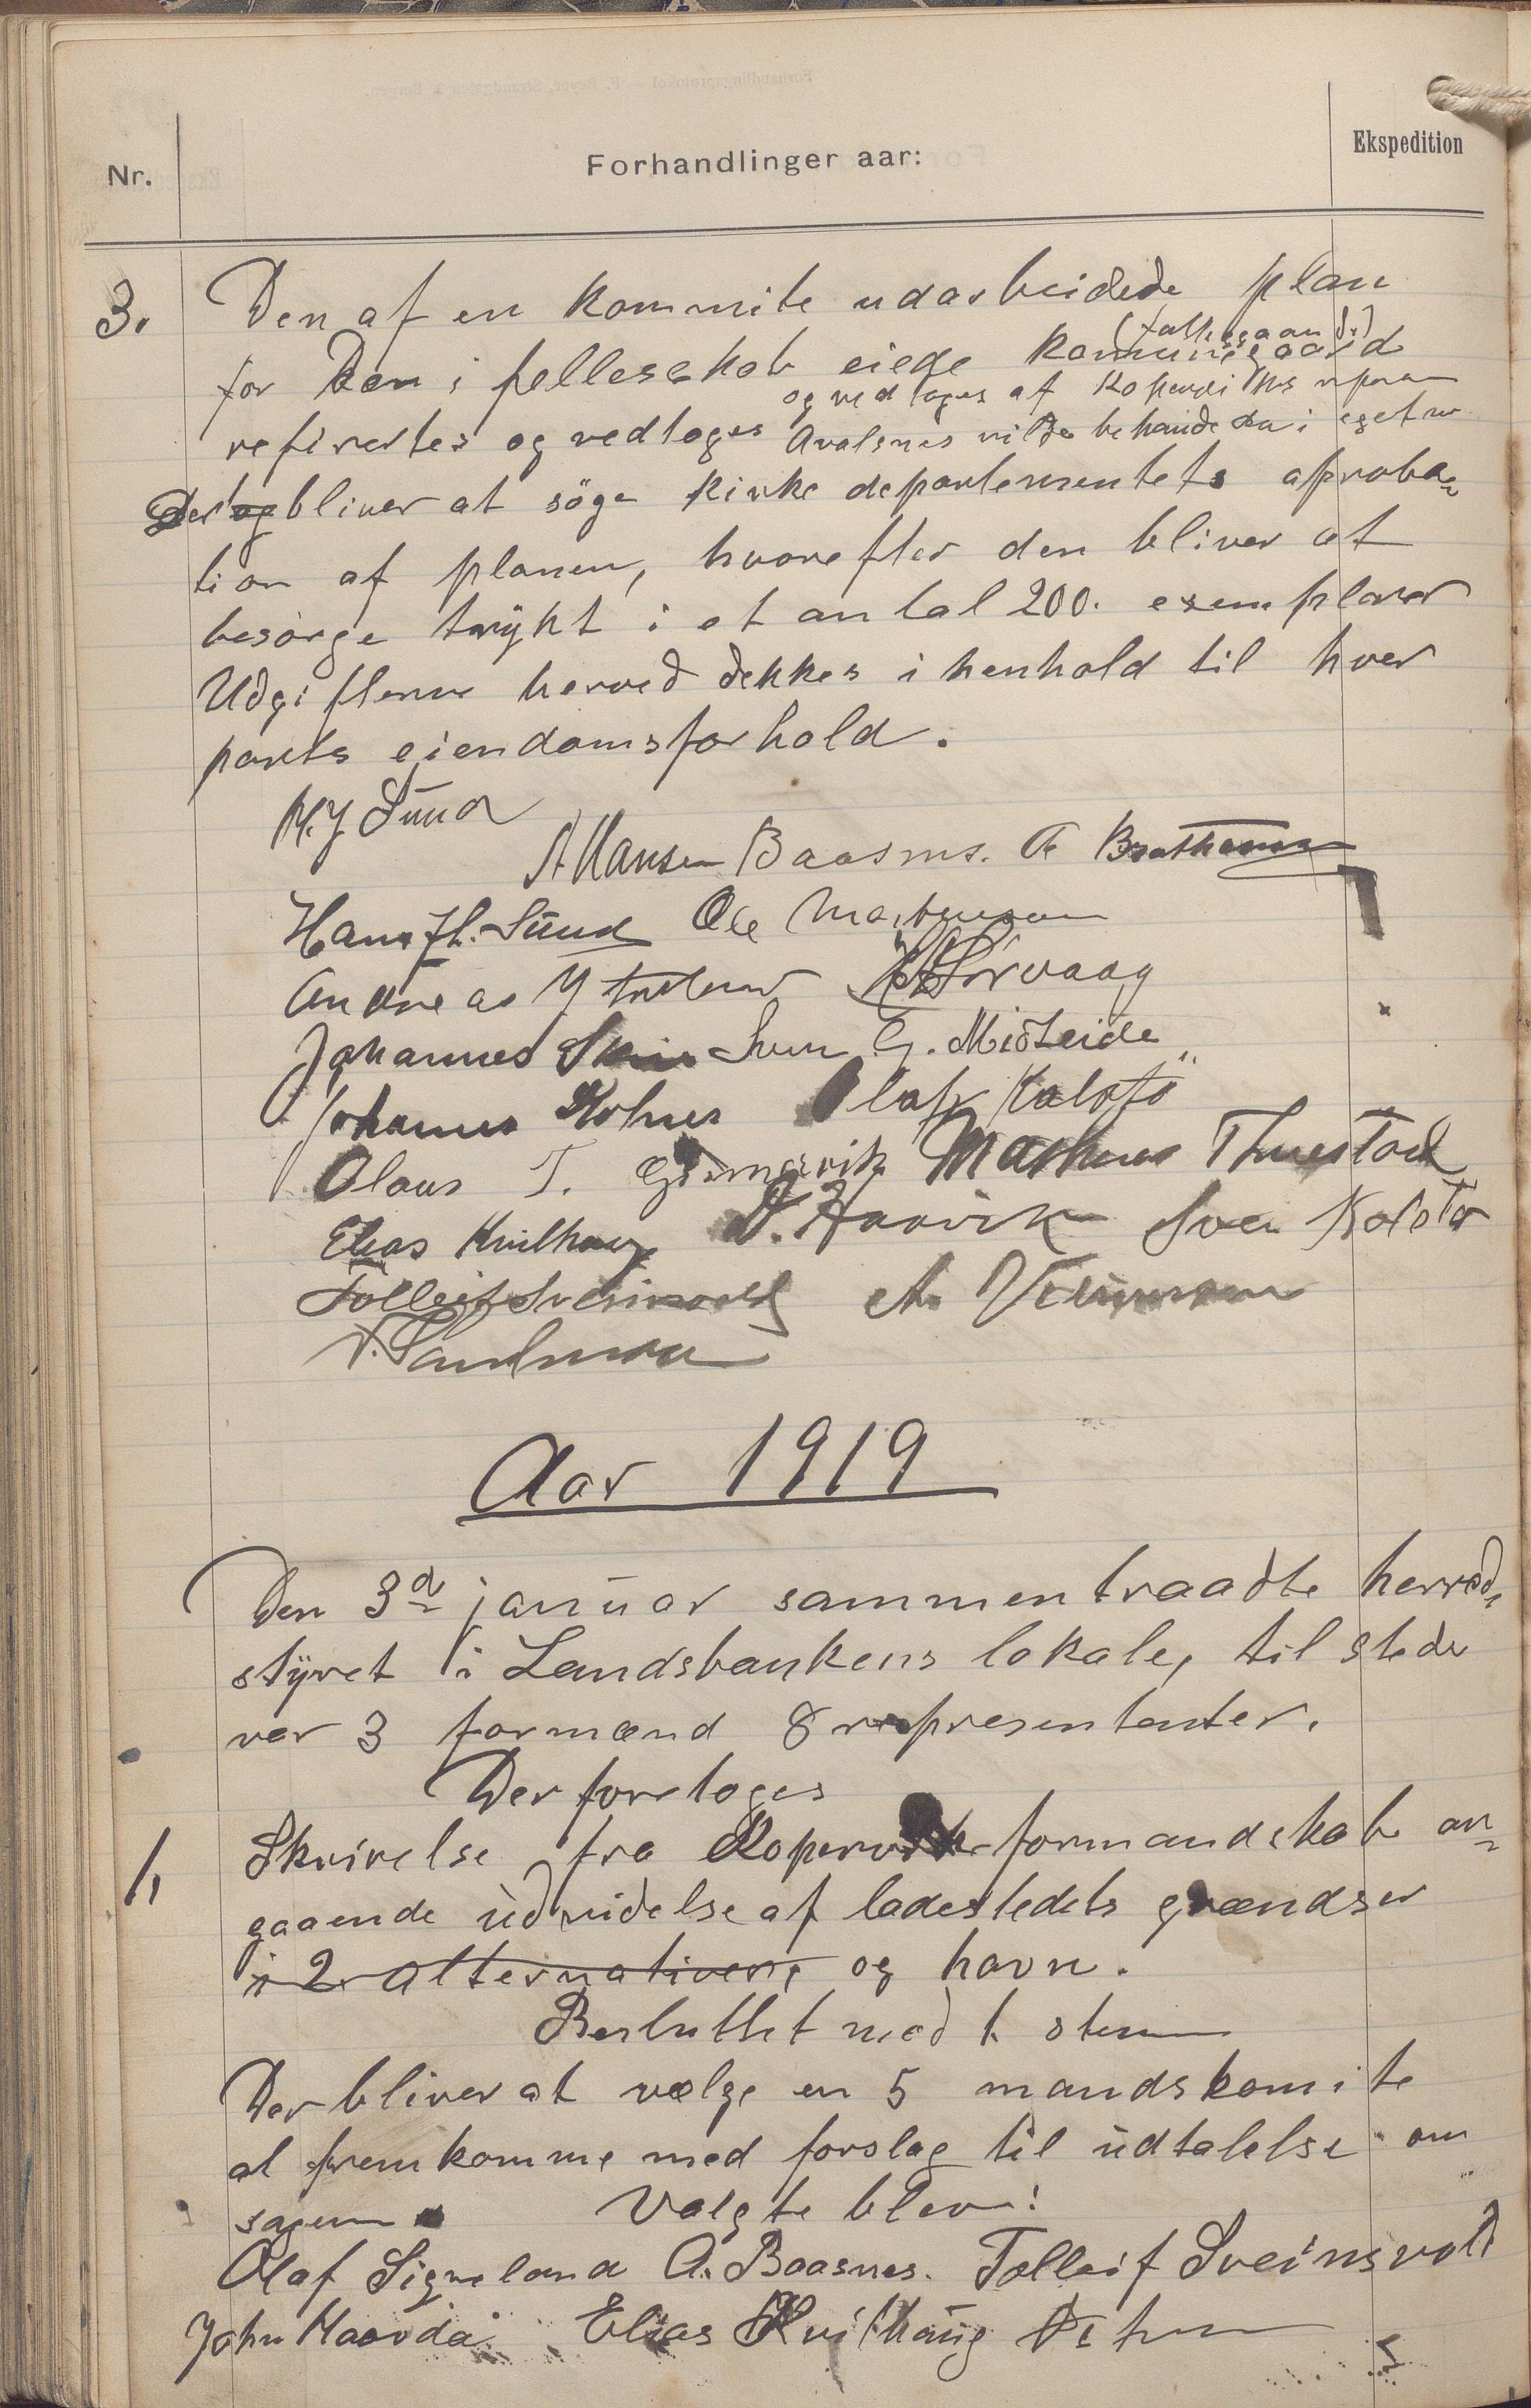 Nr.
Forhandlinger aar:
Ekspedition
3. Den af en kommite udarbeidede plan
for den i fellesskab eiede kommunegaard
refirertes og vedtoges
og vedtoges af Kopervik
Avalsnes vilde behande da i eget
Der bliver at söge Kirke departementets aproba-
tion af planen, hvorefter den bliver at
besörge trykt i et antal 200. exemplarer
Udgifterne herved dekkes i henhold til hver
parts eiendomsforhold.
H. J. Sund
A Hansen Baasnes.
Hans Th. Sund Ole Mortensen
Andreas H Sörvaag
Johannes Sven G. Midteide
Johannes Olaf Kalstö
Olaus T. Mathias Thuestad
Elias Kvilhaug D. Haavik Sven Kolstö
Tolleif Sveinsvold A.
Aar 1919
Den 3de januar sammentraadte herreds-
styret i Landsbankens lokale, til stede
var 3 formænd 8 represententer.
Der foretoges
1, Skrivelse fra Kopervik formandskab an-
gaaende udvidelse af ladestedets grændser
i 2 alternativer, og havn.
Besluttet med 1. stem
Der bliver at vælge en 5 mandskomite
at fremkomme med forslag til udtalelse om
sagen Valgte blev:
Olaf Signeland A. Baasnes. Tolleif Sveinsvold
John Haavda. Elias Kvilhaug